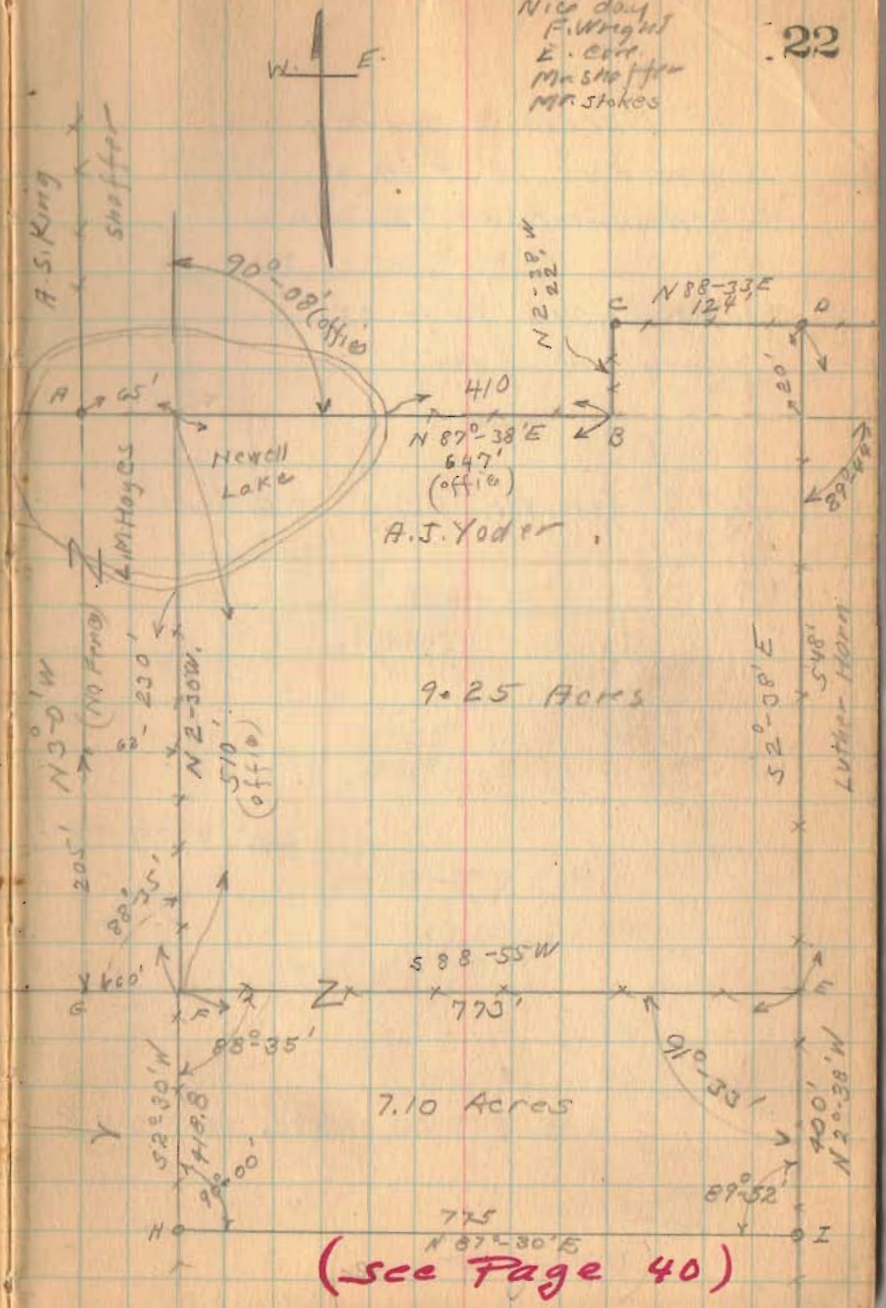 Nice day
F. Wright
22
Mr. Shoffer
Mr. Stokes
W. E.
A.S. King
Shoffer
90°-08' (offis)
N 2-38, W
22'
C
N 88-33, E
124'
D
20'
A
65'
410
N 87°-38' E
647'
(offis)
B
Newell
Lake
L.M. Hayes
A.J. Yoder
89°-44'
N 3°-0' W
(No Fence)
230'
62'
N 2-30 W.
510'
(offis)
9.25 Acres
S 2°-38' E
548'
Luther Horn
205'
88°-35'
G
60'
F
S 88-55 W
Z
773'
E
88°-35'
91°-33'
S 2°-30' W
418.8
7.10 Acres
400'
N 2°-38' W
Y
90°-00'
89°-52'
H
775
N 87°-30' E
I
(see Page 40)